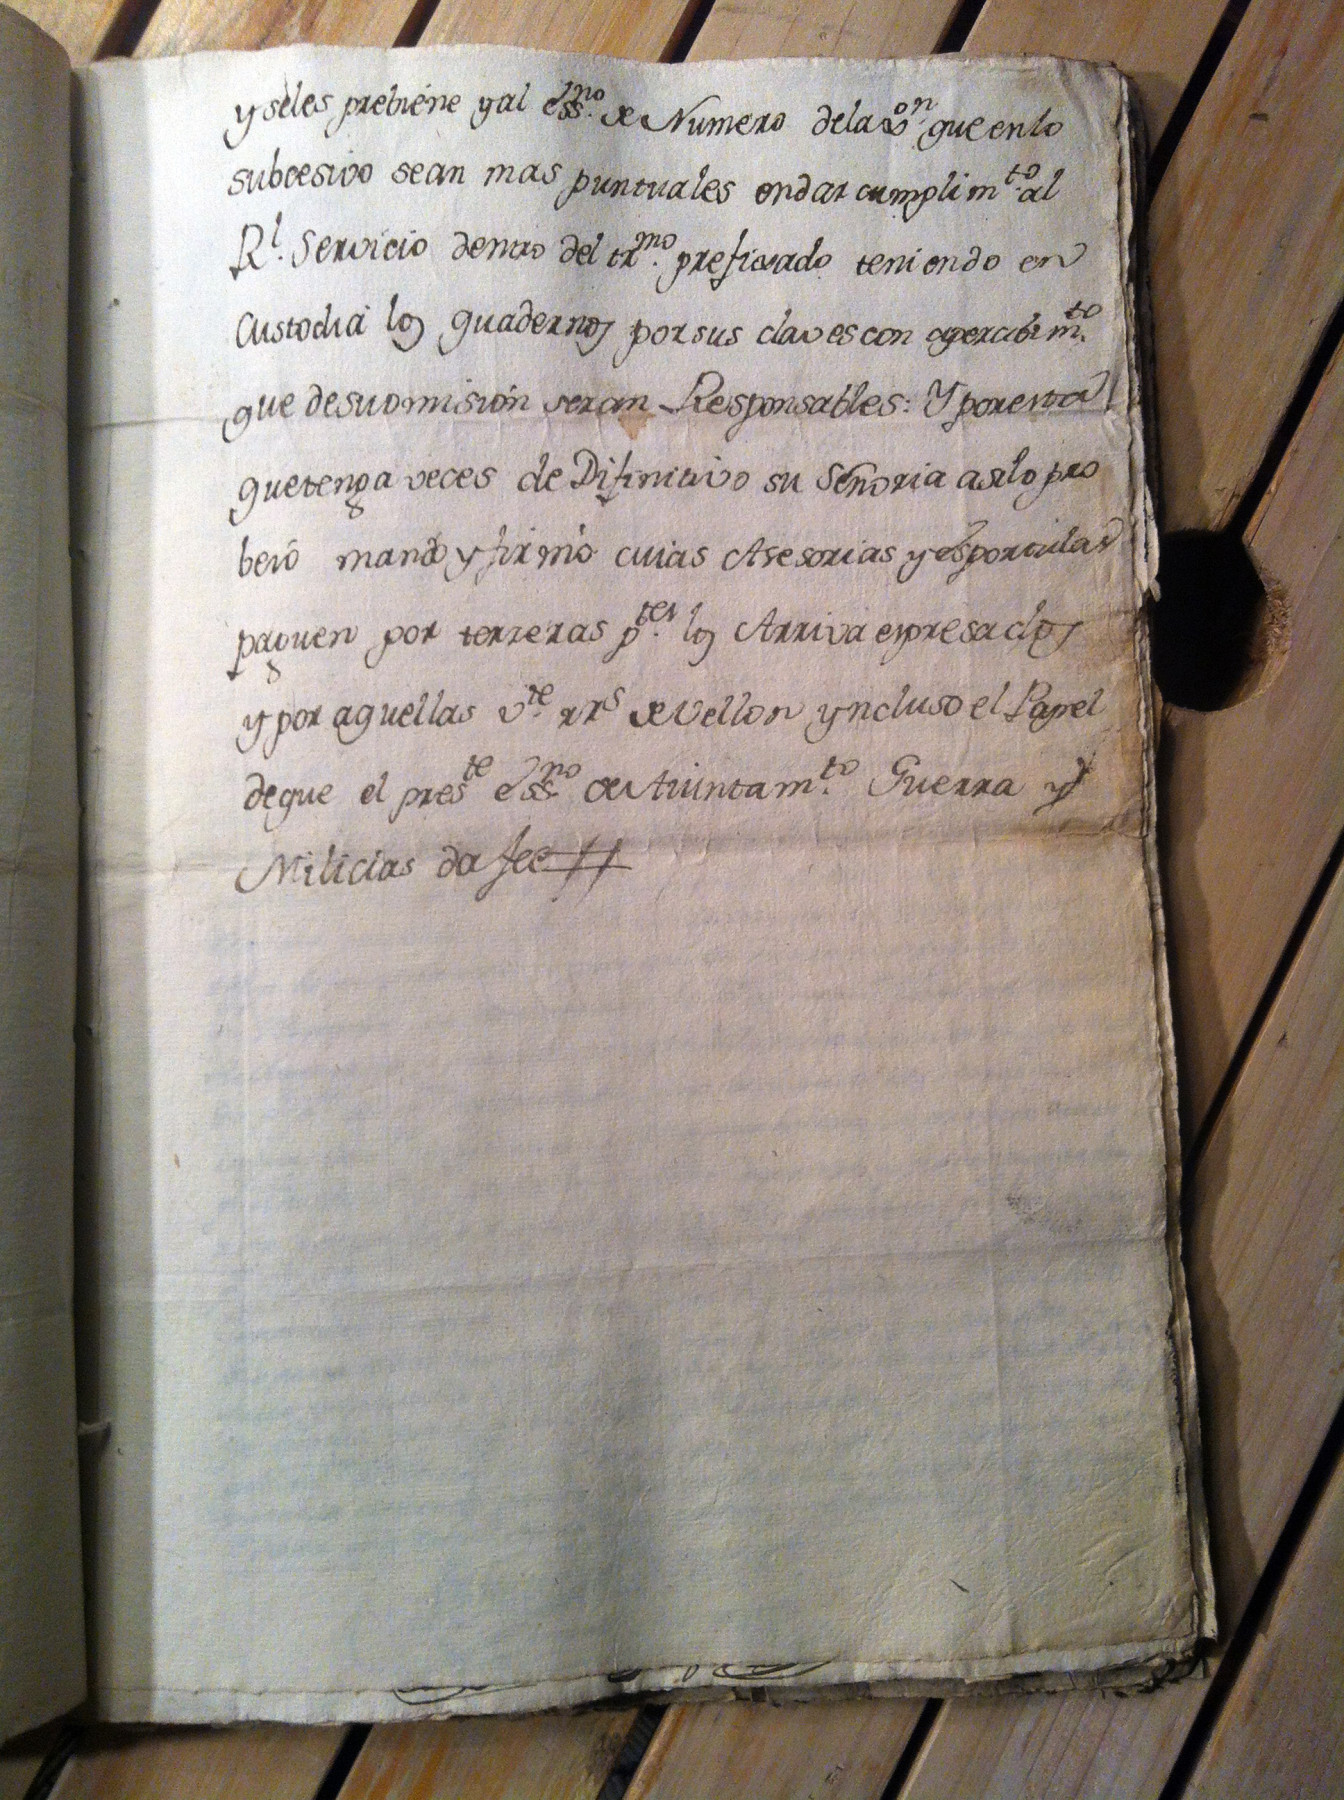 y seles prebiene y al ess.no de Numero dela v.on que enlo
subcesivo sean mas puntuales endar cumplim.to al
R.l Servicio dentro del tr.mo prefixado teniendo en
Custodia los quadernos por sus claves con apercibim.to
que desu omision seran Responsables: Y por esta
que tenga veces de Difinitivo su Señoria asilo pro
beió mando y firmó cuias Asesorias y esportulas
paguen por terzeras p.tes los Arriva expresados
y por aquellas v.te rr.s de Vellon yncluso el Papel
de que el pres.te ess.no de Aiuntam.to Guerra y
Milicias da fee